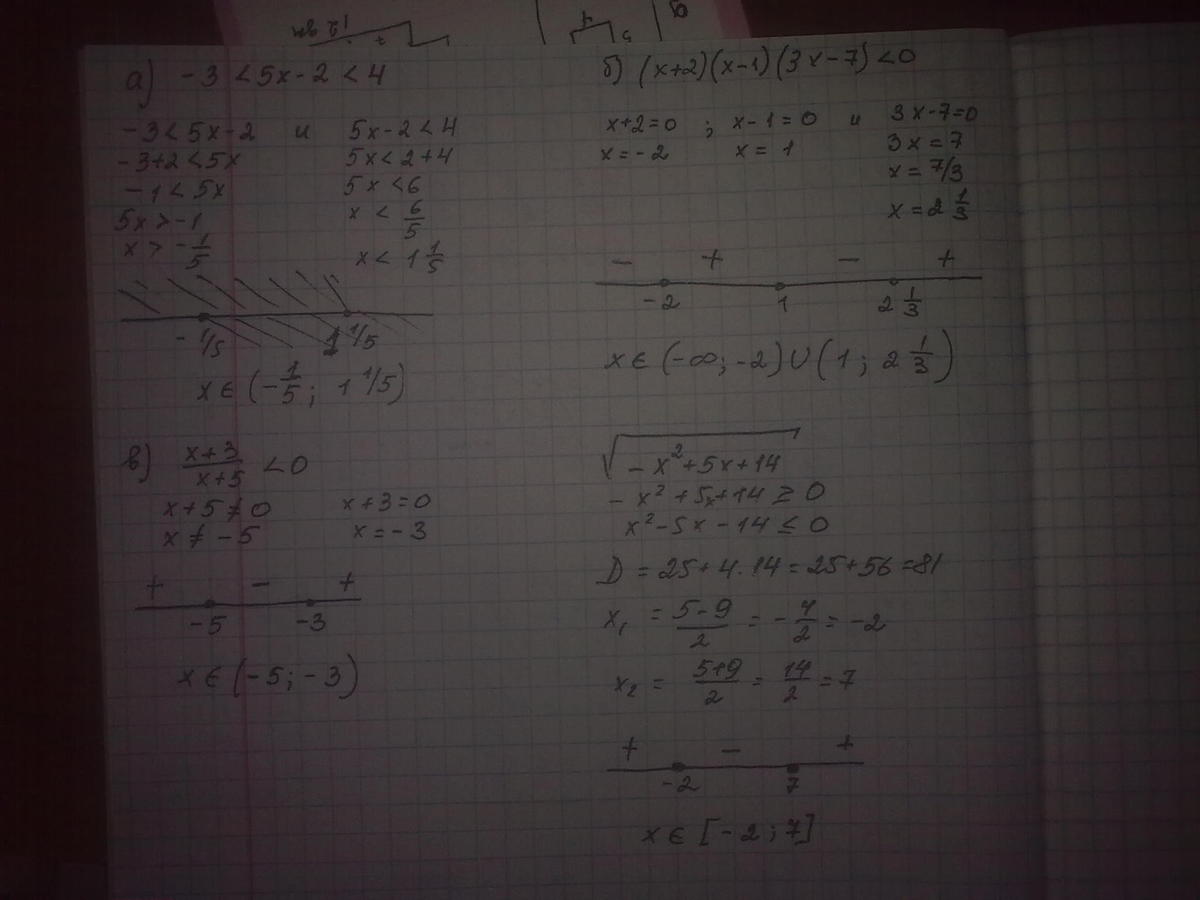 а) -3 < 5x - 2 < 4
-3 < 5x - 2 и 5x - 2 < 4
-3+2 < 5x 5x < 2+4
-1 < 5x 5x < 6
5x > -1 x < 6/5
x > -1/5 x < 1 1/5
-1/5 1 1/5
x ∈ (-1/5; 1 1/5)
б) (x+2)(x-1)(3x-7) < 0
x+2=0 ; x-1=0 и 3x-7=0
x=-2 x=1 3x=7
x=7/3
x=2 1/3
- + - +
-2 1 2 1/3
x ∈ (-∞; -2) ∪ (1; 2 1/3)
в) x+3/x+5 < 0
x+5≠0 x+3=0
x≠-5 x=-3
+ - +
-5 -3
x ∈ (-5; -3)
√-x²+5x+14
-x²+5x+14 ≥ 0
x²-5x-14 ≤ 0
D = 25+4·14 = 25+56 = 81
x₁ = 5-9/2 = -4/2 = -2
x₂ = 5+9/2 = 14/2 = 7
+ - +
-2 7
x ∈ [-2; 7]